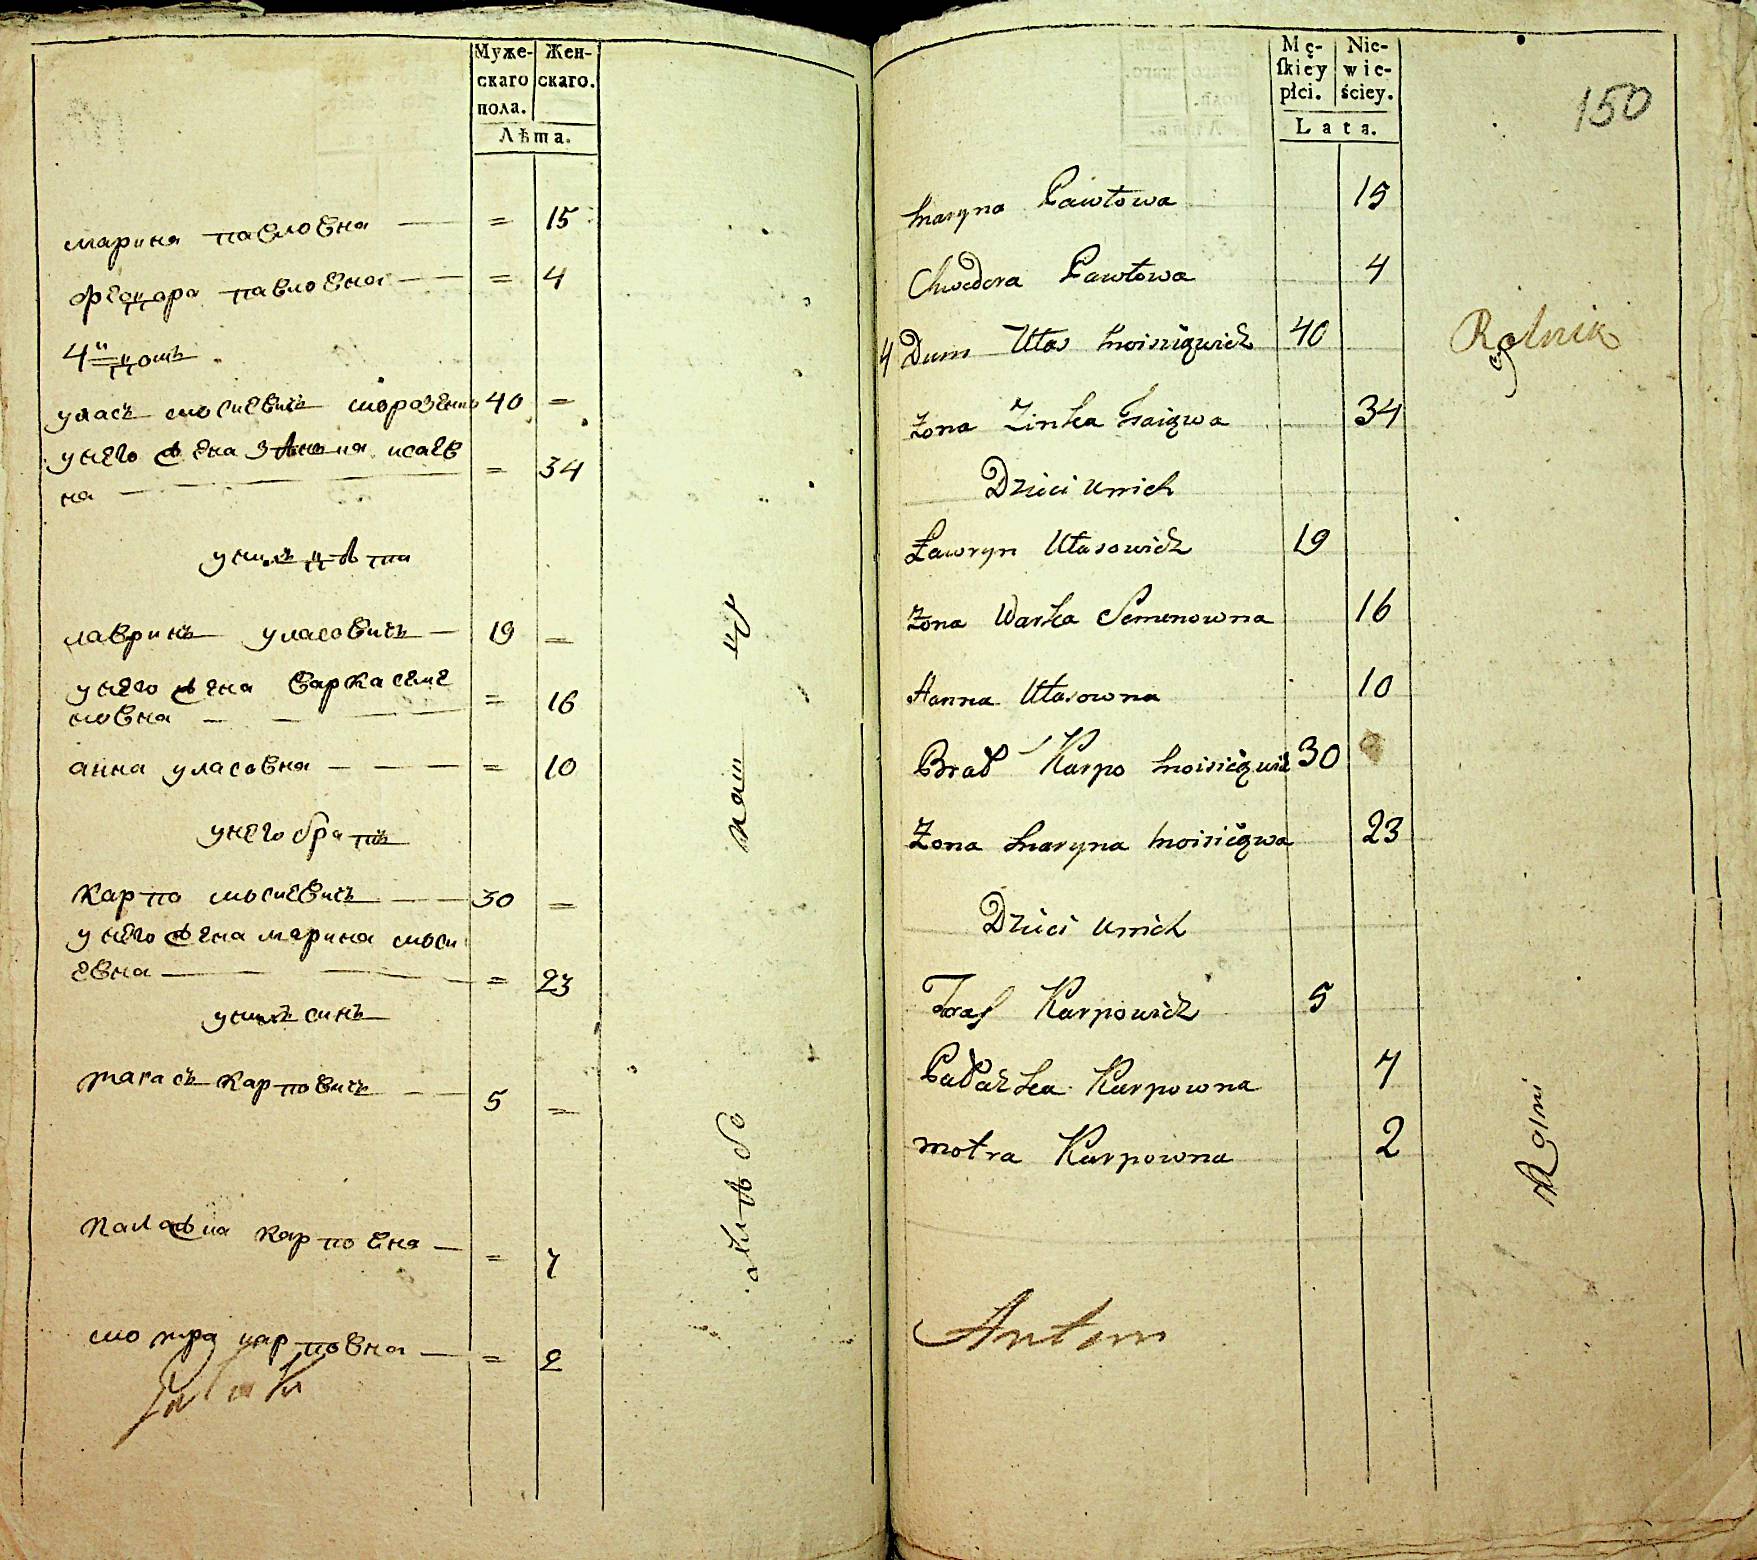 Муже-
скаго
пола.
Жен-
скаго.
Лѣта.
марина павловна — = 15
федора павловна — = 4
4й домъ
уласъ мосиевичъ морозенко 40 =
унего жена зѣновия исаев
на — = 34
унихъ дѣти
лавринъ уласовичъ — 19 =
унего жена варка семе
новна — = 16
анна уласовна — = 10
унего братъ
карпо мосиевичъ — 30 =
унего жена марина моси
евна — = 23
унихъ синъ
тарасъ карповичъ — 5 =
палажка карповна — = 7
мотра карповна — = 2
паш
Mę-
skiey
płci.
Nie-
wie-
ściey.
Lata.
150
Maryna Pawłowa 15
Chwedora Pawłowa 4
4 Dum Ułas Moisiiowicz 40
Rolnik
Żona Zinka Isaiowa 34
Dzieci u nich
Ławryn Ułasowicz 19
Żona Warka Semenowna 16
Hanna Ułasowna 10
Brat Karpo Moisieiowicz 30
Żona Maryna Moisieiowa 23
Dzieci u nich
Taras Karpowicz 5
Pałażka Karpowna 7
Motra Karpowna 2
Antoni